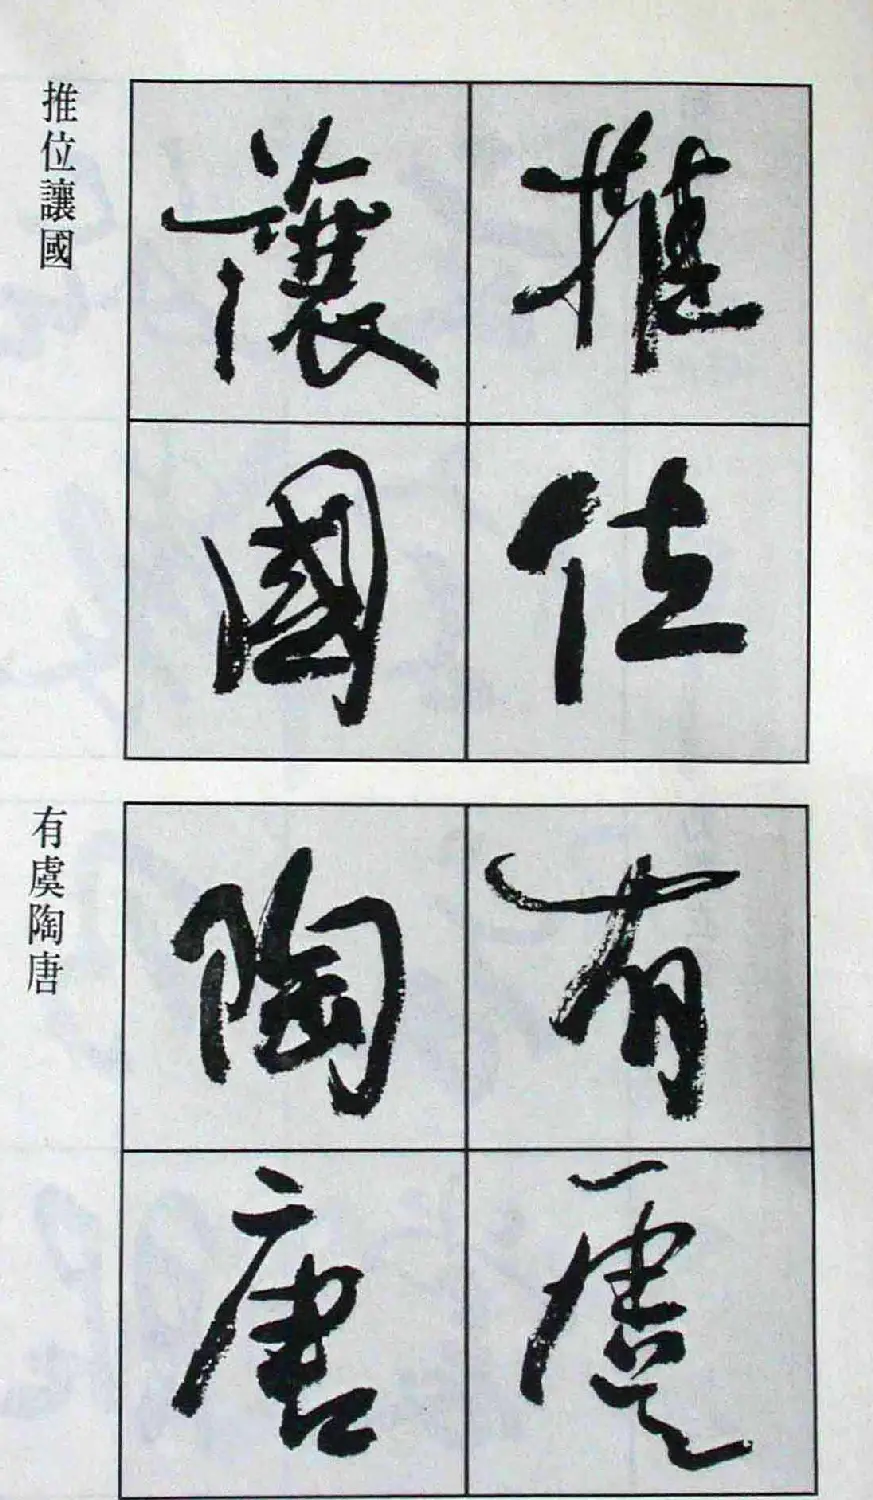 推位
讓國
推位讓國
有虞
陶唐
有虞陶唐